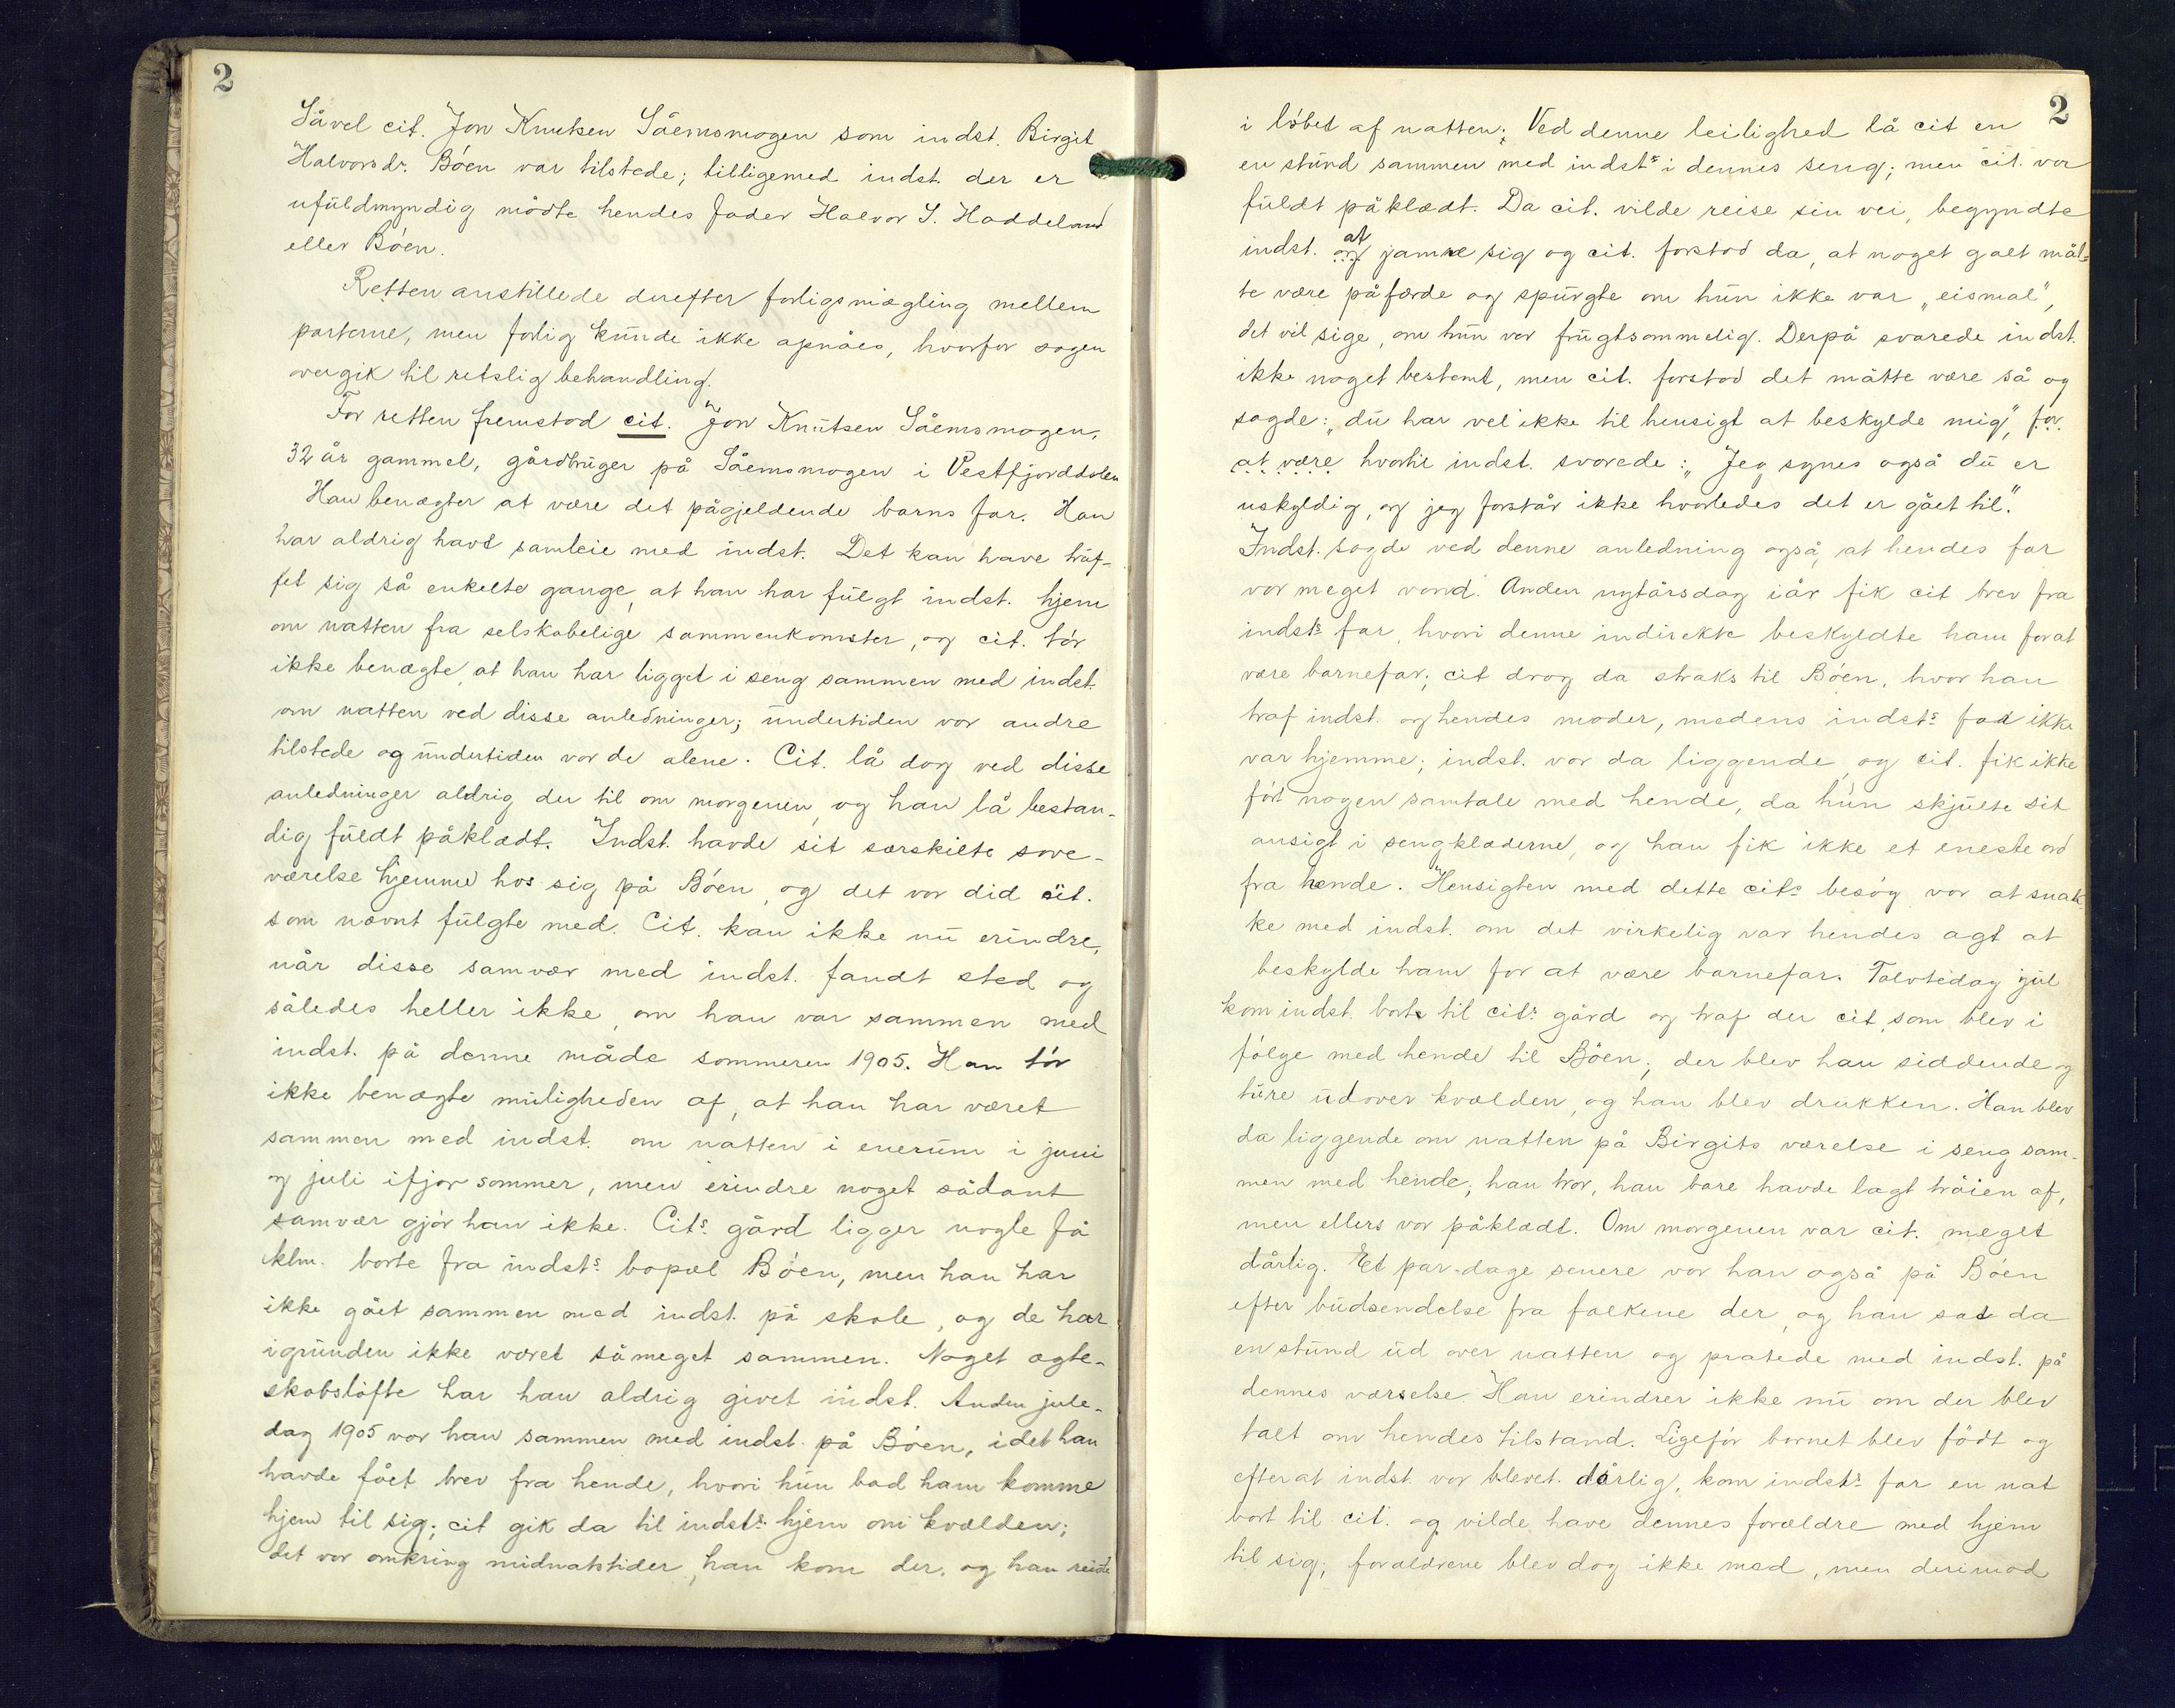 2
Såvel cit. Jon Knutsen Såemsmogen som indst. Birgit
Halvorsdr. Böen var tilstede; tilligemed indst. der er
ufuldmyndig mödte hendes fader Halvor S. Haddeland
eller Böen.
Retten anstillede derefter forligsmægling mellem
parterne, men forlig kunde ikke opnåes, hvorfor sagen
overgik til retslig behandling.
For retten fremstod cit. Jon Knutsen Såemsmogen,
32 år gammel, gårdbruger på Såemsmogen i Vestfjorddalen
Han benægter at være det pågjeldende barns far. Han
har aldrig havt samleie med indst. Det kan have truf-
fet sig så enkelte gange, at han har fulgt indst. hjem
om natten fra selskabelige sammenkomster, og cit. tör
ikke benægte, at han har ligget i seng sammen med indst.
om natten ved disse anledninger; undertiden var andre
tilstede og undertiden var de alene. Cit. lå dog ved disse
anledninger aldrig der til om morgenen, og han lå bestan-
dig fuldt påklædt. Indst. havde sit særskilte sove-
værelse hjemme hos sig på Böen, og det var did cit.
som nævnt fulgte med. Cit. kan ikke nu erindre,
når disse samvær med indst. fandt sted og
således heller ikke, om han var sammen med
indst. på denne måde sommeren 1905. Han tör
ikke benægte muligheden af, at han har været
sammen med indst. om natten i enerum i juni
og juli ifjor sommer, men erindre noget sådant
samvær gjör han ikke. Cits. gård ligger nogle få
klm. borte fra indsts. bopæl Böen, men han har
ikke gået sammen med indst. på skole, og de har
igrunden ikke været såmeget sammen. Noget ægte-
skabslöfte har han aldrig givet indst. Anden jule-
dag 1905 var han sammen med indst. på Böen, idet han
havde fået brev fra hende, hvori hun bad ham komme
hjem til sig; cit gik da til indsts. hjem om kvælden;
det var omkring midnatstider, han kom der, og han reiste
2
i löbet af natten; Ved denne leilighed lå cit en
en stund sammen med indsts i dennes seng; men cit. var
fuldt påklædt. Da cit. vilde reise sin vei, begyndte
indst. og at jamre sig og cit. forstod da, at noget galt mål-
te være påfærde og spurgte om hun ikke var „eismal",
det vil sige, om hun var frugtsommelig. Derpå svarede indst.
ikke noget bestemt, men cit. forstod det måtte være så og
sagde: „du har vel ikke til hensigt at beskylde mig", for
at være hvortil indst. svarede: „Jeg synes også du er
uskyldig, og jeg forstår ikke hvorledes det er gået til."
Indst. sagde ved denne anledning også, at hendes far
var meget vond. Anden nytårsdag iår fik cit brev fra
indsts. far, hvori denne indirekte beskyldte ham for at
være barnefar; cit drog da straks til Böen, hvor han
traf indst. og hendes moder, medens indsts. far ikke
var hjemme; indst. var da liggende, og cit. fik ikke
fört nogen samtale med hende, da hun skjulte sit
ansigt i sengklæderne, og han fik ikke et eneste ord
fra hende. Hensigten med dette cits. besög var at snak-
ke med indst. om det virkelig var hendes agt at
beskylde ham for at være barnefar. Tolvtedag jul
kom indst. borte til cits. gård og traf der cit, som blev i
fölge med hende til Böen; der blev han siddende og
ture udover kvælden, og han blev drukken. Han blev
da liggende om natten på Birgits værelse i seng sam-
men med hende; han tror, han bare havde lagt tröien af,
men ellers var påklædt. Om morgenen var cit. meget
dårlig. Et par dage senere var han også på Böen
efter budsendelse fra folkene der, og han sat da
en stund ud over natten og pratede med indst. på
dennes værselse. Han erindrer ikke nu om der blev
talt om hendes tilstand. Ligefør barnet blev födt og
efterat indst. var blevet dårlig, kom indsts. far en nat
bort til cit. og vilde have dennes forældre med hjem
til sig; forældrene blev dog ikke med, men derimod